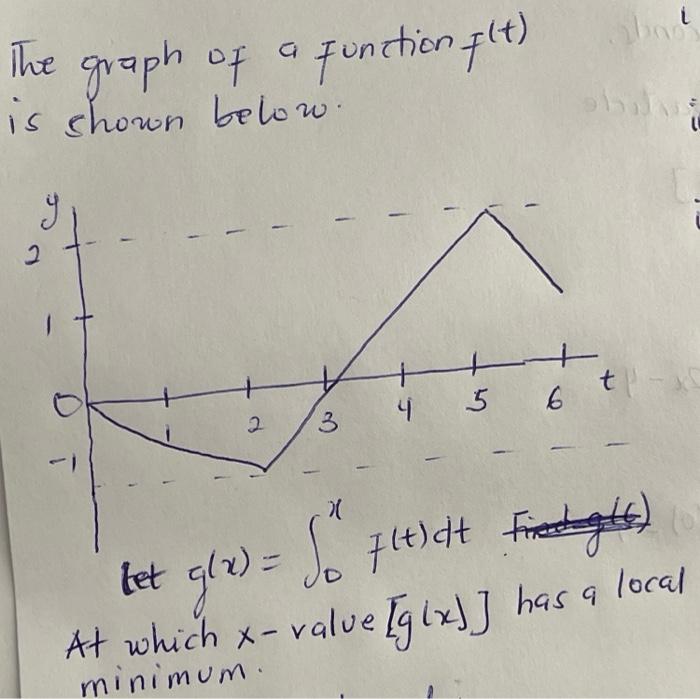 The graph of a function f(t)
is shown below.
y
2
1
0
-1
1 2 3 4 5 6 t
let g(x) = ∫₀ˣ f(t)dt
At which x-value [g(x)] has a local
minimum.